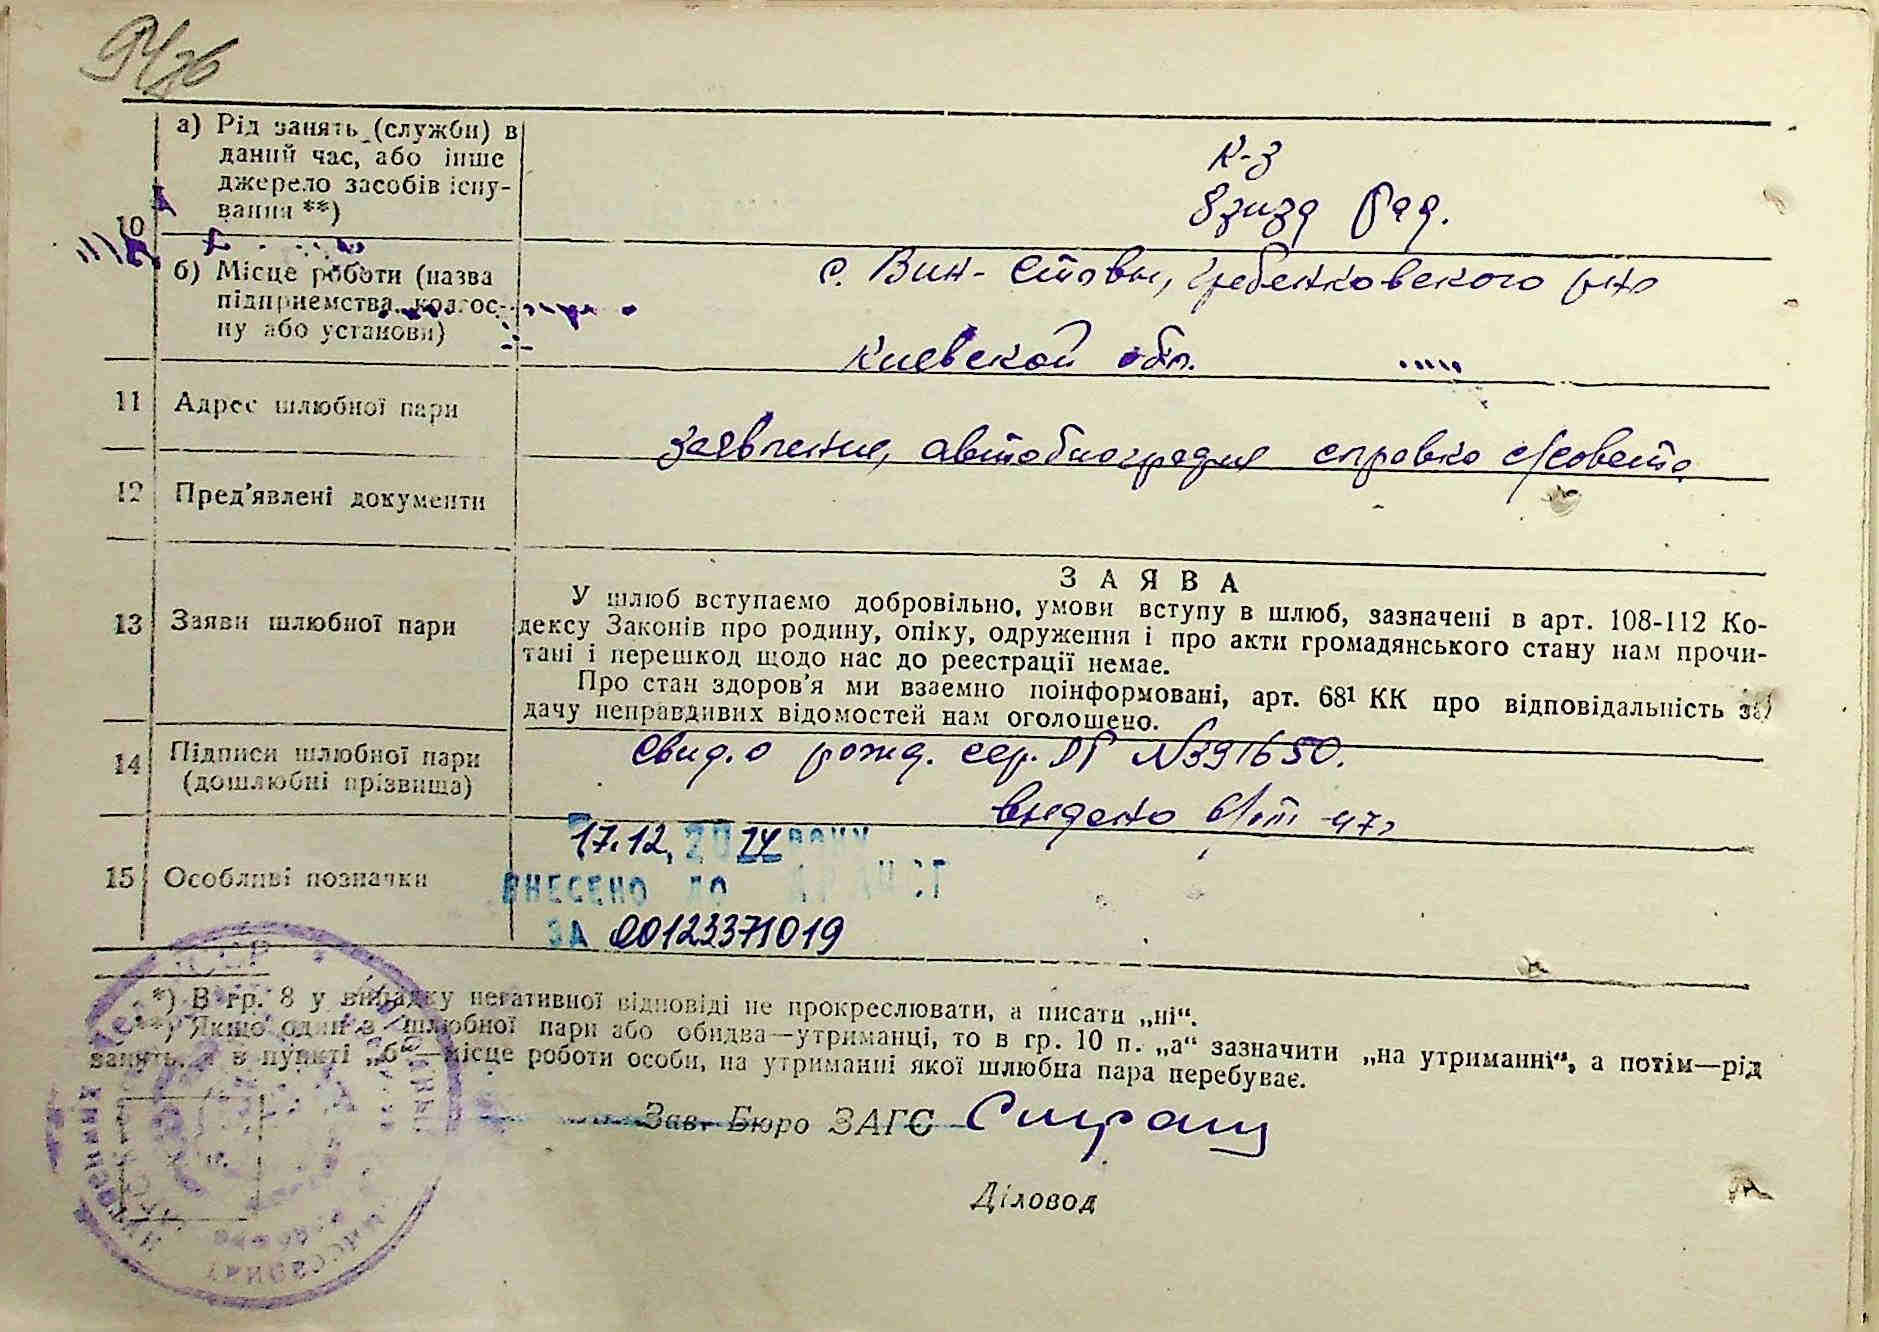 а) Рід занять (служби) в
даний час, або інше
джерело засобів існу-
вання **)
к-з
рад.
10
б) Місце роботи (назва
підприємства, колгос-
пу або установи)
с. Вин- Ставы, Гребенковского р-на
Киевской обл.
11 Адрес шлюбної пари
заявления, автобиография справка с/совета
12 Пред'явлені документи
ЗАЯВА
13 Заяви шлюбної пари
У шлюб вступаємо добровільно, умови вступу в шлюб, зазначені в арт. 108-112 Ко-
дексу Законів про родину, опіку, одруження і про акти громадянського стану нам прочи-
тані і перешкод щодо нас до реєстрації немає.
Про стан здоров'я ми взаємно поінформовані, арт. 68¹ КК про відповідальність за
дачу неправдивих відомостей нам оголошено.
14 Підписи шлюбної пари
(дошлюбні прізвища)
Свид. о рожд. сер. №391650.
выдано
17.12. 2014 року
15 Особливі позначки
ВНЕСЕНО ДО
ЗА 00123371019
*) В гр. 8 у випадку негативної відповіді не прокреслювати, а писати „ні“.
**) Якщо один з шлюбної пари або обидва—утриманці, то в гр. 10 п. „а“ зазначити „на утриманні“, а потім—рід
занять, а в пункті „б“—місце роботи особи, на утриманні якої шлюбна пара перебуває.
Зав. Бюро ЗАГС
Діловод